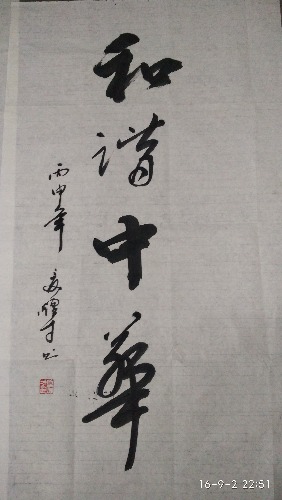 和諧中華
丙申年
書
16-9-2 22:51